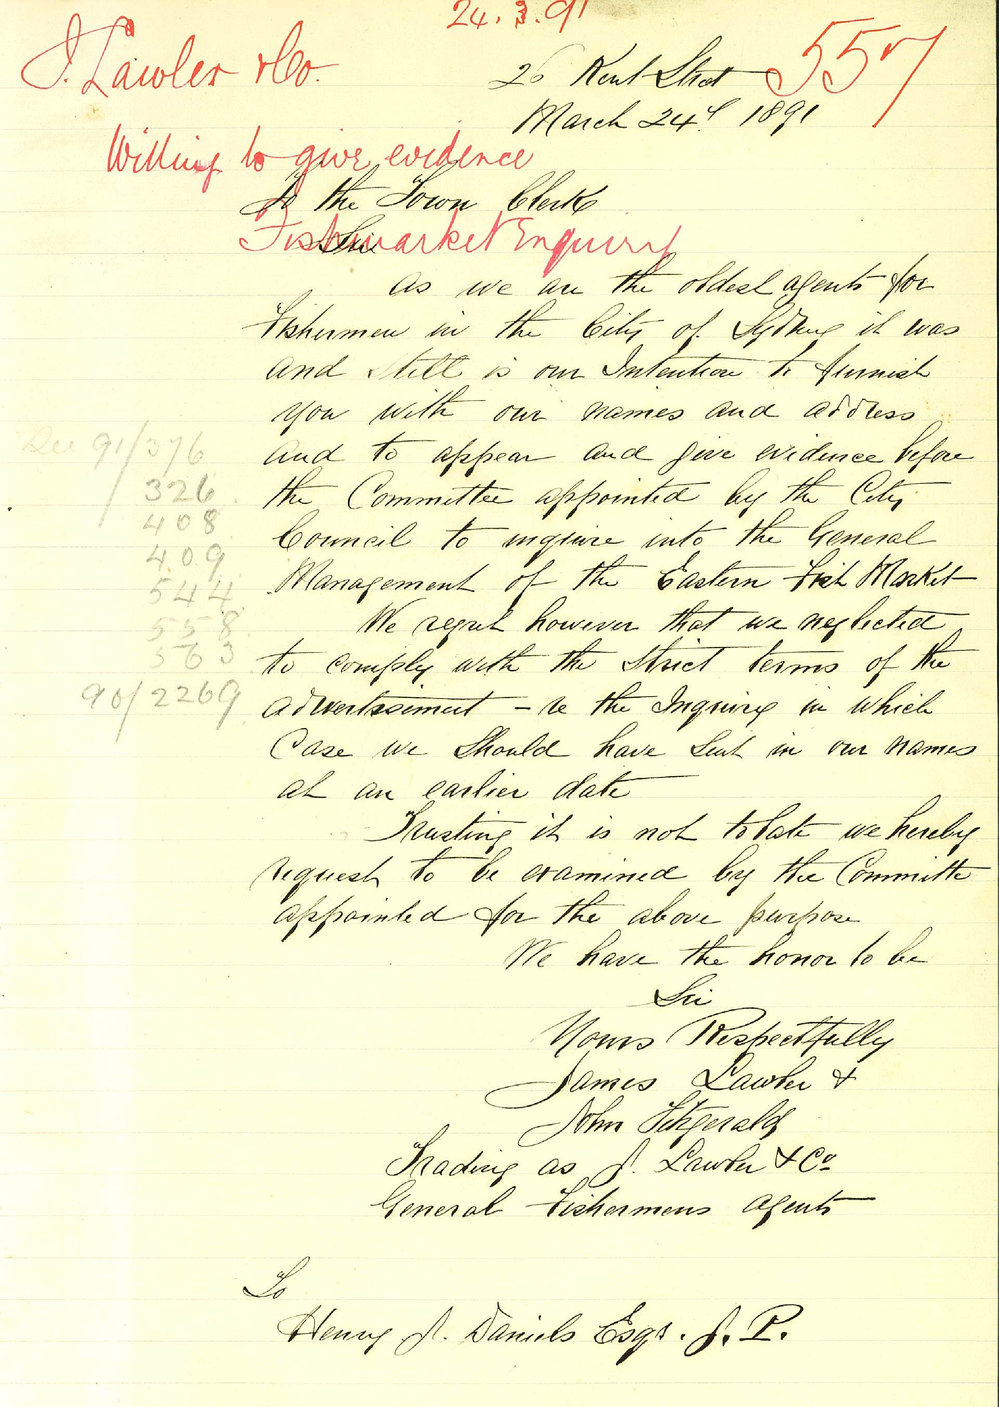 24.3.91
J. Lawler & Co.
557
26 Kent Street
March 24th 1891
Willing to give evidence
To the Town Clerk
Fishmarket Enquiry
Sir
As we are the oldest agents for
Fishermen in the City of Sydney it was
and still is our Intention to furnish
you with our names and address
and to appear and give evidence before
the Committee appointed by the City
Council to inquire into the General
Management of the Eastern Fish Market
We regret however that we neglected
to comply with the Strict terms of the
advertisement - re the Inquiry in which
Case we Should have Sent in our names
at an earlier date
Trusting it is not to late we hereby
request to be examined by the Committe
appointed for the above purpose
We have the honor to be
Sir
Yours Respectfully
James Lawler &
John Fitzgerald
Trading as J. Lawler & Co
General Fishermens agents
To
Henry J. Daniels Esqr. J. P.
91/376
326
408
409
544
558
563
90/2269